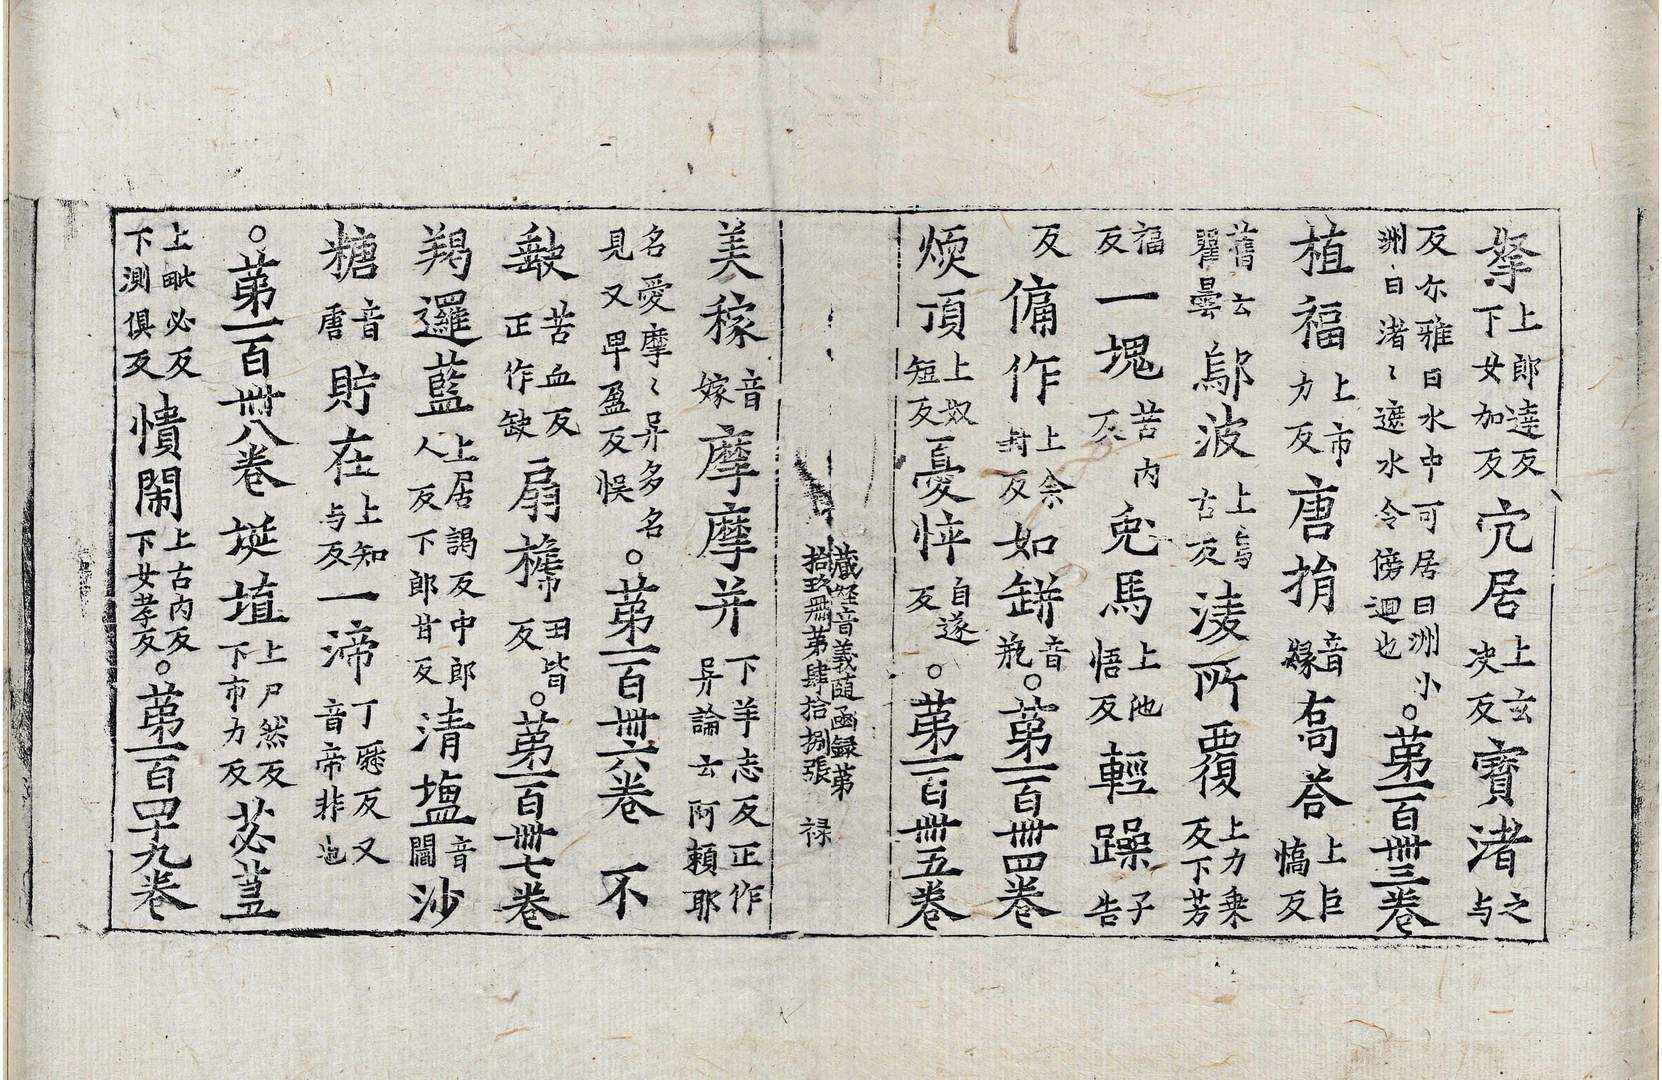 拏上郎達反下女加反宂居上玄决反寶渚之与
反尔雅曰水中可居曰洲小洲曰渚〻遮水令傍迴也。第一百卌三卷
植福上市力反唐捐音緣喬荅上巨憍反
舊云瞿曇鄔波上烏古反淩所覆上力乗反下芳
福反一塊苦内反兎馬上他悟反輕躁子告
反傭作上余封反如缾音瓶。第一百卌四卷
煗頂上奴短反憂悴自遂反。第一百卌五卷
藏經音義随函録第拾玖冊第肆拾捌張 禄
美稼音嫁摩摩并下羊志反正作异論云阿頼耶
名愛摩〻异多名見又畀盈反悮。第一百卌六卷 不
㱁苦血反正作缺扇搋丑皆反。第一百卌七卷
羯邏藍上居謁反中郎人反下郎甘反清塩音閻沙
糖音唐貯在上知与反一渧丁歷反又音帝非也
。第一百卌八卷 埏埴上尸然反下市力反苾蒭
上毗必反下測俱反憒閙上古内反下女孝反。第一百四十九卷